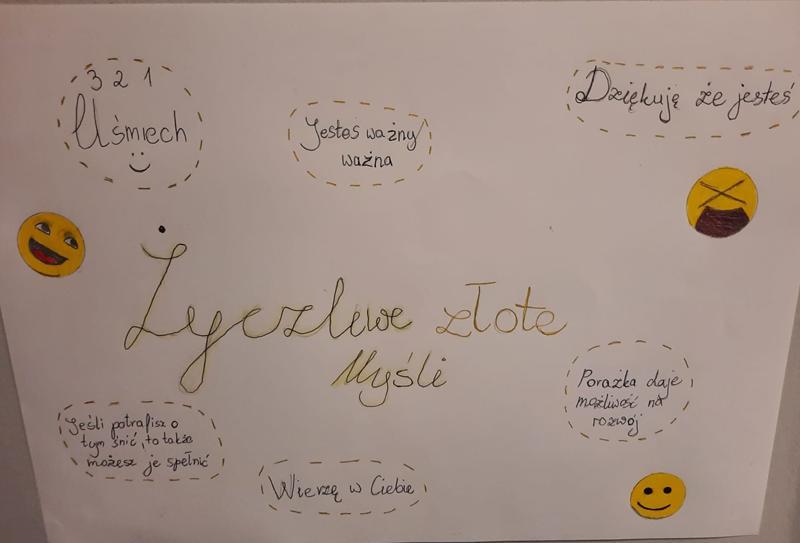 3 2 1
Uśmiech
Jesteś ważny/
ważna
Dziękuję że jesteś
Życzliwe złote
Myśli
Jeśli potrafisz o
tym śnić, to także
możesz je spełnić
Wierzę w Ciebie
Porażka daje
możliwość na
rozwój